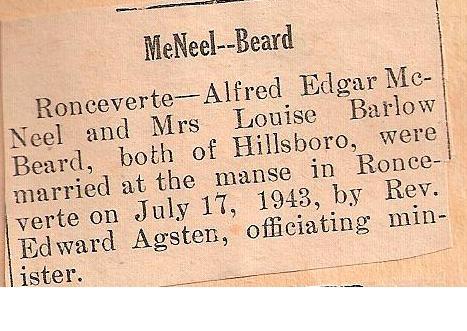 McNeel--Beard
Ronceverte—Alfred Edgar Mc-
Neel and Mrs Louise Barlow
Beard, both of Hillsboro, were
married at the manse in Ronce-
verte on July 17, 1943, by Rev.
Edward Agsten, officiating min-
ister.